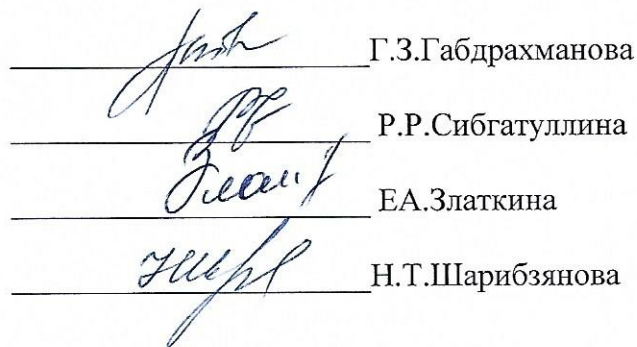 Г.З.Габдрахманова
Р.Р.Сибгатуллина
ЕА.Златкина
Н.Т.Шарибзянова